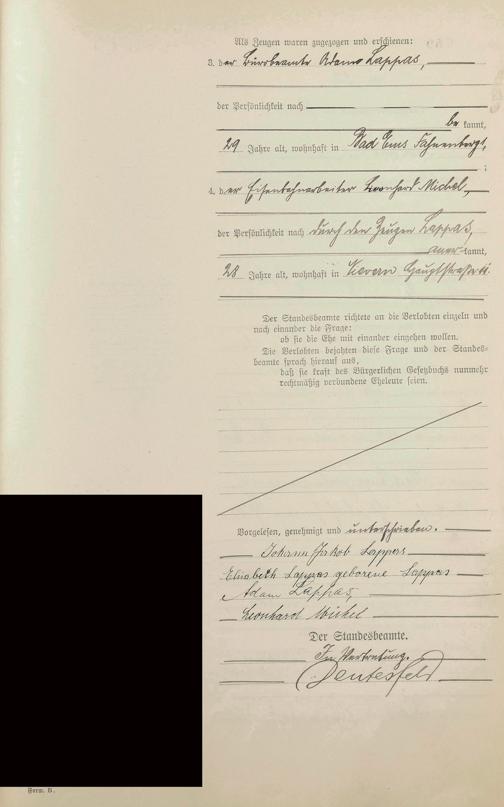 Als Zeugen waren zugezogen und erschienen:
3. der Bürobeamte Adam Lappas,
der Persönlichkeit nach
be kannt,
29 Jahre alt, wohnhaft in Bad Ems Fahnenberg 1,
;
4. der Eisenbahnarbeiter Leonhard Michel,
der Persönlichkeit nach durch den Zeugen Lappas,
aner kannt,
28 Jahre alt, wohnhaft in Nievern Hauptstraße
Der Standesbeamte richtete an die Verlobten einzeln und
nach einander die Frage:
ob sie die Ehe mit einander eingehen wollen.
Die Verlobten bejahten diese Frage und der Standes-
beamte sprach hierauf aus,
daß sie kraft des Bürgerlichen Gesetzbuchs nunmehr
rechtmäßig verbundene Eheleute seien.
Vorgelesen, genehmigt und unterschrieben.
Johann Jakob Lappas
Elisabeth Lappas geborene Lappas
Adam Lappas,
Leonhard Michel
Der Standesbeamte.
In Vertretung.
Deutesfeld
Form. B.